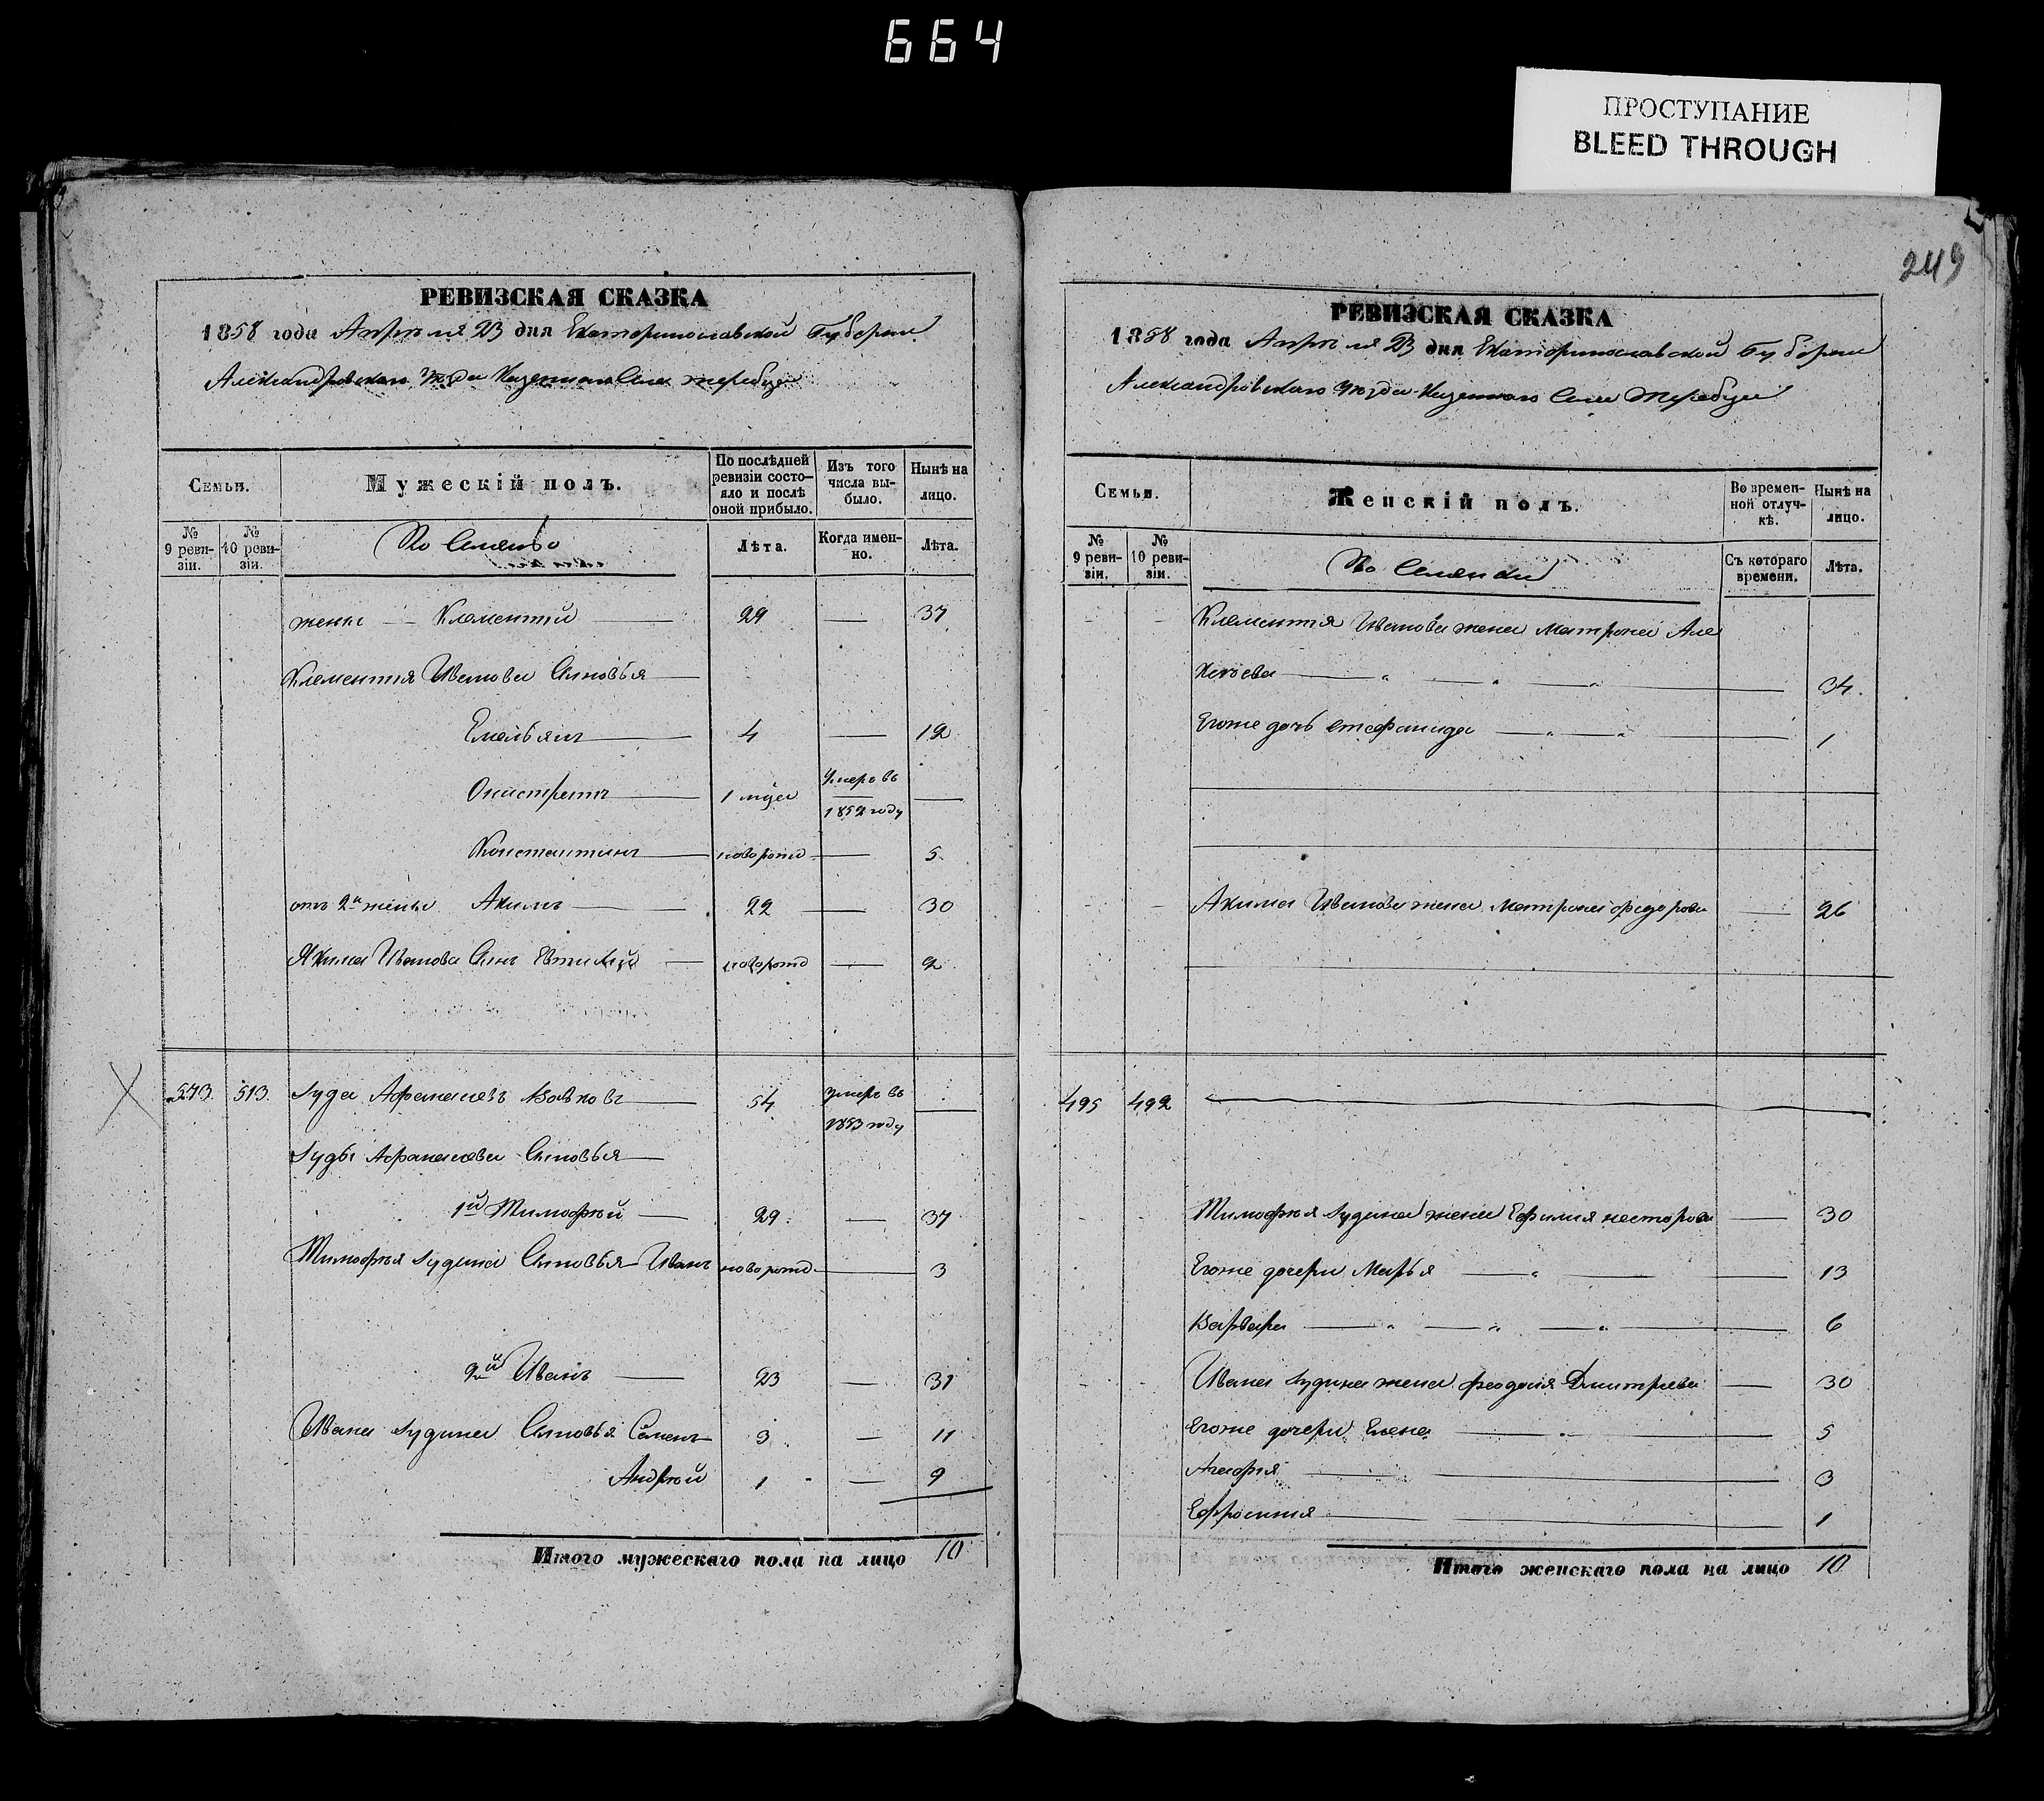 664
ПРОСТУПАНИЕ
BLEED THROUGH
РЕВИЗСКАЯ СКАЗКА
1858 года Апрѣля 23 дня Екатеринославской Губерніи
Александровскаго Уѣзда Казеннаго Села Жеребца
Семьи.
Мужескій полъ.
По послѣдней ревизіи состо-
яло и послѣ
оной прибыло.
Изъ того
числа вы-
было.
Нынѣ на
лицо.
№
9 реви-
зіи.
№
10 реви-
зіи.
Лѣта.
Когда имен-
но.
Лѣта.
жены — Клементій — 29 — 37
Клементія Иванова Сыновья —
Емельянъ — 4 — 12
1 мѣца Умеръ въ 1852 году —
Константинъ — новорожд — 5
отъ 2й жены Акимъ — 22 — 30
Якима Иванова Сынъ Евтихій — новорожд — 2
513 Іуда Афанасьевъ — 54 Умеръ въ 1853 году —
Іуды Афанасьева Сыновья —
1й Тимофѣй — 29 — 37
Тимофѣя Іудина Сыновья Иванъ новорожд — 3
2й Иванъ — 23 — 31
Ивана Іудина Сыновья Семенъ 3 — 11
Андрѣй 1 — 9
Итого мужескаго пола на лицо 10
249
РЕВИЗСКАЯ СКАЗКА
1858 года Апрѣля 23 дня Екатеринославской Губерніи
Александровскаго Уѣзда Казеннаго Села Жеребца
Семьи.
Женскій полъ.
Во времен-
ной отлуч-
кѣ.
Нынѣ на
лицо.
№
9 реви-
зіи.
№
10 реви-
зіи.
Съ котораго
времени.
Лѣта.
Клементія Иванова жена Матрона Але
ксѣева — 34
Егоже дочь Стефанида — 1
Акима Иванова жена Матрона Федорова — 26
495 492 —
Тимофѣя Іудина жена Ефимія Несторова — 30
Егоже дочери Марья — 13
Варвара — 6
Ивана Іудина жена Феодосія Дмитріева — 30
Егоже дочери Елена — 5
Агафія — 3
Ефросинія — 1
Итого женскаго пола на лицо 10